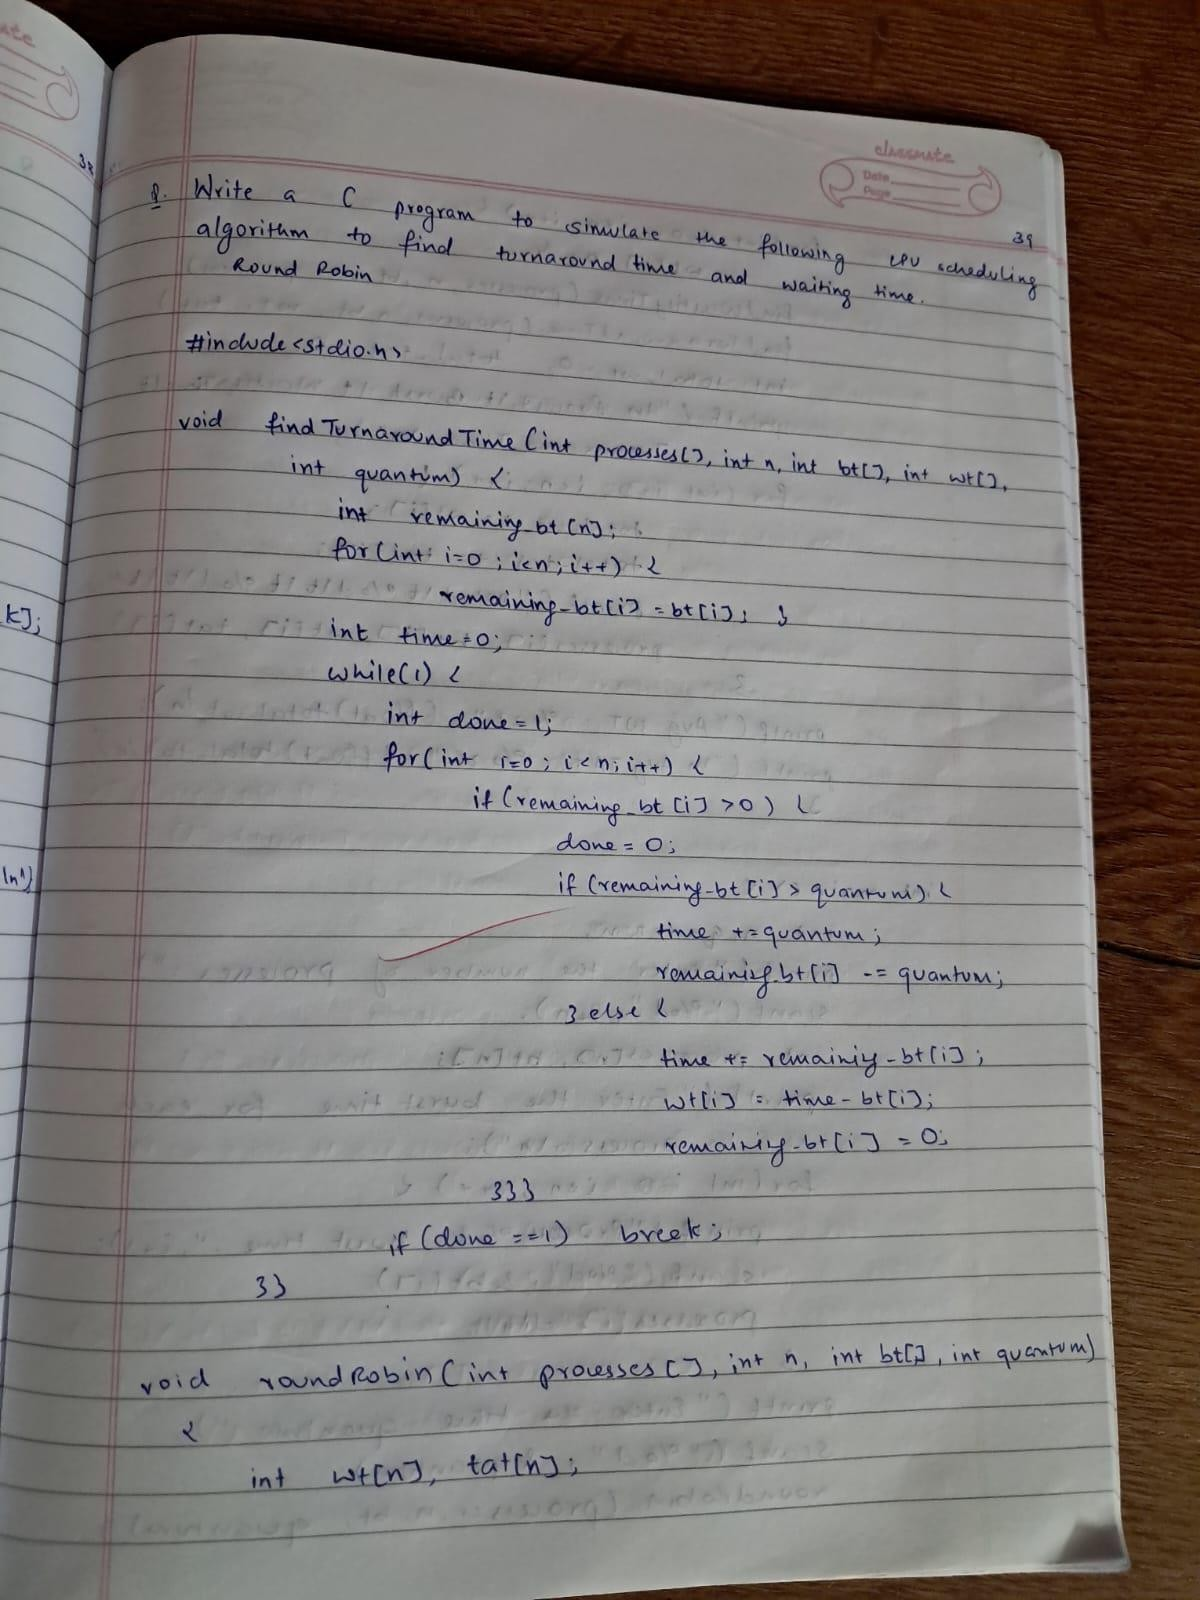 ate
38
classmate
Date
Page
39
Q. Write a C program to simulate the following CPU scheduling
algorithm to find turnaround time and waiting time.
Round Robin
#include<stdio.h>
void findTurnaroundTime(int processes[], int n, int bt[], int wt[],
int quantum) {
int remaining_bt[n];
for(int i=0; i<n; i++) {
remaining_bt[i] = bt[i]; }
int time=0;
while(1) {
int done=1;
for(int i=0; i<n; i++) {
if (remaining_bt[i] >0) {
done = 0;
if (remaining_bt[i] > quantum) {
time += quantum;
remaining_bt[i] -= quantum;
} else {
time += remaining_bt[i];
wt[i] = time - bt[i];
remaining_bt[i] = 0;
}}}
if (done ==1) break;
}}
void roundRobin(int processes[], int n, int bt[], int quantum)
{
int wt[n], tat[n];
k];